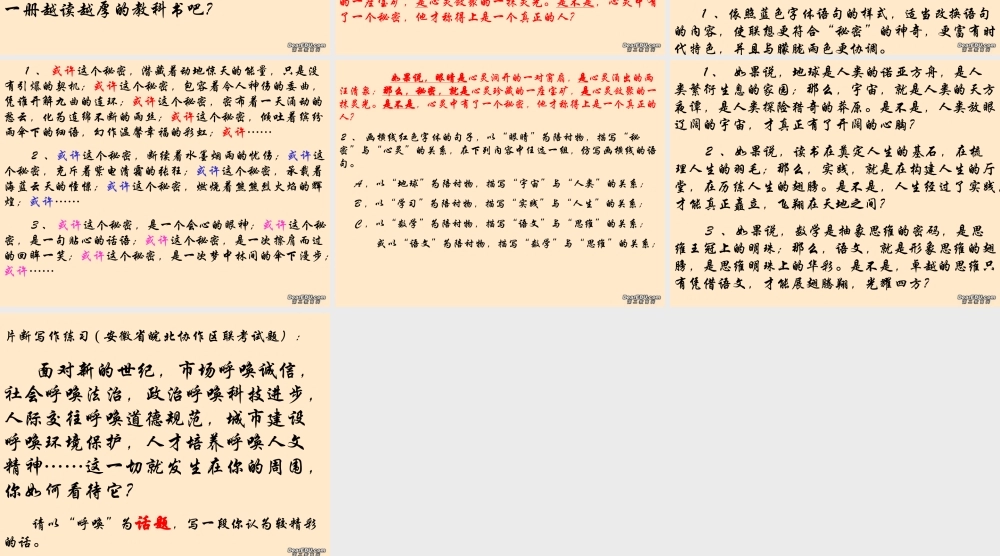 一册越读越厚的教科书吧？
的一座宝矿，是心灵放牧的一抹灵光。是不是，心灵中有
了一个秘密，他才称得上是一个真正的人？
1、依照蓝色字体语句的样式，适当改换语句
的内容，使联想更符合“秘密”的神奇，更富有时
代特色，并且与朦胧雨色更协调。
1、或许这个秘密，潜藏着动地惊天的能量，只是没
有引爆的契机；或许这个秘密，包容着令人神伤的委曲，
凭谁开解九曲的连环；或许这个秘密，密布着一天涌动的
愁云，化为连绵不断的雨丝；或许这个秘密，倾吐着缤纷
雨伞下的细语，幻作温馨幸福的彩虹；或许……
2、或许这个秘密，断续着水墨烟雨的忧伤；或许这
个秘密，充斥着紫电清霜的张狂；或许这个秘密，承载着
海蓝云天的憧憬；或许这个秘密，燃烧着熊熊烈火焰的辉
煌；或许……
3、或许这个秘密，是一个会心的眼神；或许这个秘
密，是一句贴心的话语；或许这个秘密，是一次擦肩而过
的回眸一笑；或许这个秘密，是一次梦中林间的伞下漫步；
或许……
如果说，眼睛是心灵洞开的一对窗扇，是心灵涌出的两
汪清泉；那么，秘密，就是心灵珍藏的一座宝矿，是心灵放牧的一
抹灵光。是不是，心灵中有了一个秘密，他才称得上是一个真正的
人？
2、画横线红色字体的句子，以“眼睛”为陪衬物，描写“秘
密”与“心灵”的关系，在下列内容中任选一组，仿写画横线的语
句。
A，以“地球”为陪衬物，描写“宇宙”与“人类”的关系；
B，以“学习”为陪衬物，描写“实践”与“人生”的关系；
C，以“数学”为陪衬物，描写“语文”与“思维”的关系；
或以“语文”为陪衬物，描写“数学”与“思维”的关系；
1、如果说，地球是人类的诺亚方舟，是人
类繁衍生息的家园；那么，宇宙，就是人类的天方
夜谭，是人类探险猎奇的莽原。是不是，人类放眼
辽阔的宇宙，才真正有了开阔的心胸？
2、如果说，读书在奠定人生的基石，在梳
理人生的羽毛；那么，实践，就是在构建人生的厅
堂，在历练人生的翅膀。是不是，人生经过了实践，
才能真正矗立，飞翔在天地之间？
3、如果说，数学是抽象思维的密码，是思
维王冠上的明珠；那么，语文，就是形象思维的翅
膀，是思维明珠上的华彩。是不是，卓越的思维只
有凭借语文，才能展翅腾翔，光耀四方？
片断写作练习（安徽省皖北协作区联考试题）：
面对新的世纪，市场呼唤诚信，
社会呼唤法治，政治呼唤科技进步，
人际交往呼唤道德规范，城市建设
呼唤环境保护，人才培养呼唤人文
精神……这一切就发生在你的周围，
你如何看待它？
请以“呼唤”为话题，写一段你认为较精彩
的话。